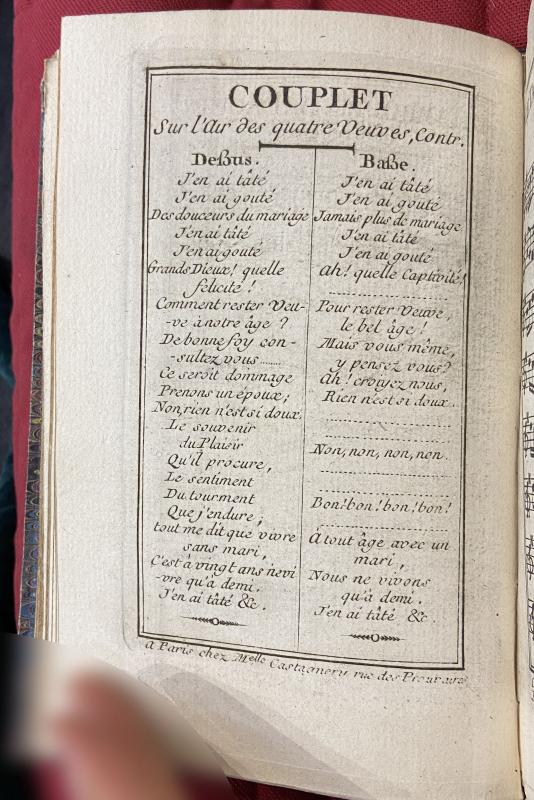 COUPLET
Sur l'Air des quatre Veuves, Contr.
Deßus.
J'en ai tâté
J'en ai gouté
Des douceurs du mariage
J'en ai tâté
J'en ai gouté
Grands Dieux! quelle
felicité !
Comment rester Veu-
-ve à notre âge ?
De bonne foy con-
-sultez vous........
Ce seroit dommage
Prenons un époux;
Non, rien n'est si doux.
Le souvenir
du Plaisir
Qu'il procure,
Le sentiment
Du tourment
Que j'endure;
tout me dit que vivre
sans mari,
C'est à vingt ans ne vi
-vre qu'à demi.
J'en ai tâté &c.
Baße.
J'en ai tâté
J'en ai gouté
Jamais plus de mariage
J'en ai tâté
J'en ai gouté
Ah! quelle Captivité!
..............................
Pour rester Veuve,
le bel âge !
Mais vous même,
y pensez vous?
Ah! croyez nous,
Rien n'est si doux.
..............................
..............................
Non, non, non, non.
..............................
..............................
Bon! bon! bon! bon!
..............................
A tout âge avec un
mari,
Nous ne vivons
qu'à demi.
J'en ai tâté &c.
à Paris chez Melle Castagnery rue des Prouvaires